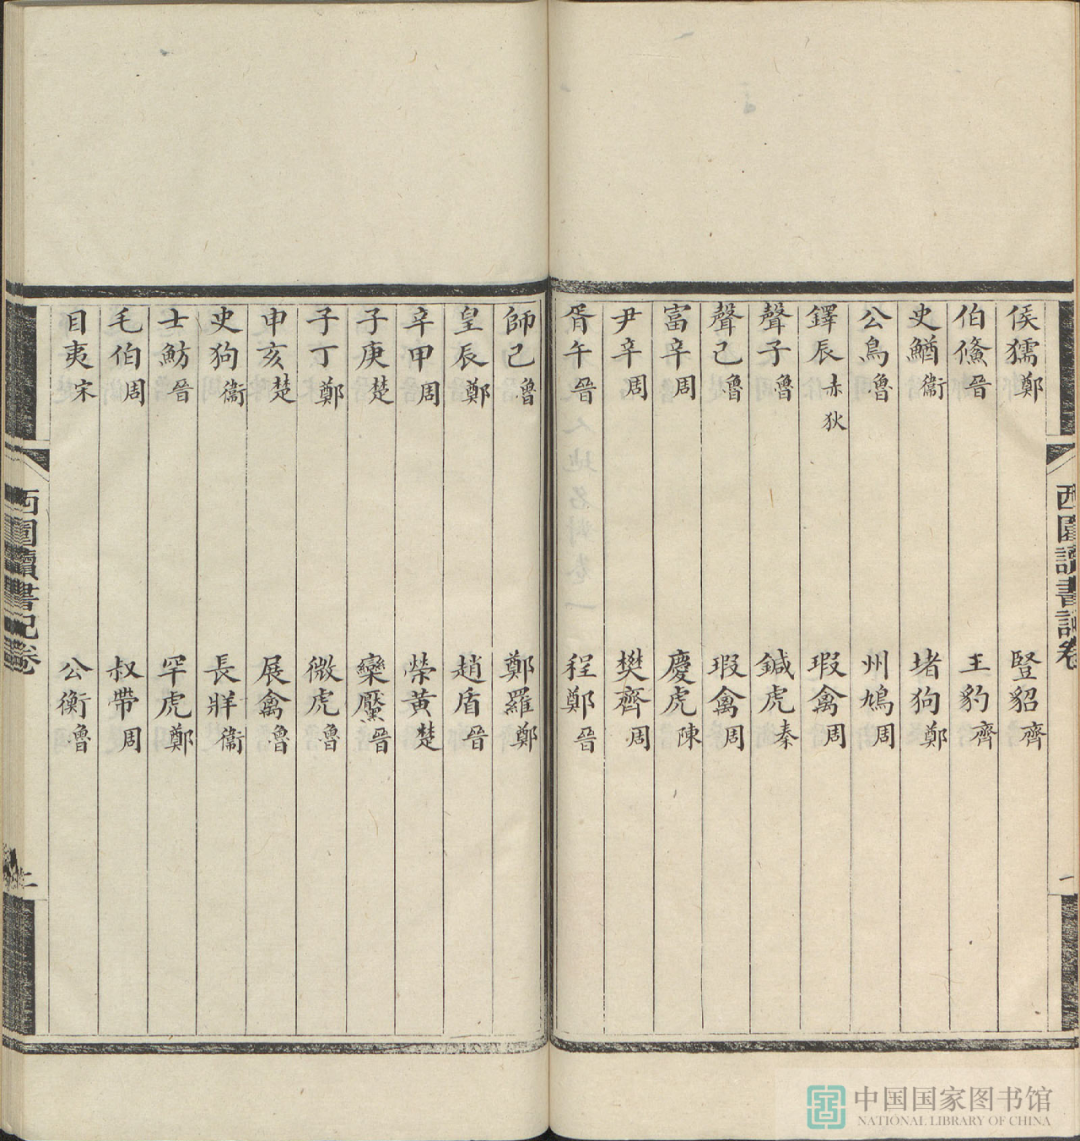 西圃讀書記卷
一
侯獳鄭 豎貂齊
伯儵晉 王豹齊
史鰌衞 堵狗鄭
公鳥魯 州鳩周
鐸辰赤狄 瑕禽周
聲子魯 鍼虎秦
聲己魯 瑕禽周
富辛周 慶虎陳
尹辛周 樊齊周
胥午晉 程鄭晉
師己魯 鄭羅鄭
皇辰鄭 趙盾晉
辛甲周 榮黃楚
子庚楚 欒黶晉
子丁鄭 微虎魯
申亥楚 展禽魯
史狗衞 長牂衞
士魴晉 罕虎鄭
毛伯周 叔帶周
目夷宋 公衡魯
西圃讀書記卷
二
中国国家图书馆
NATIONAL LIBRARY OF CHINA